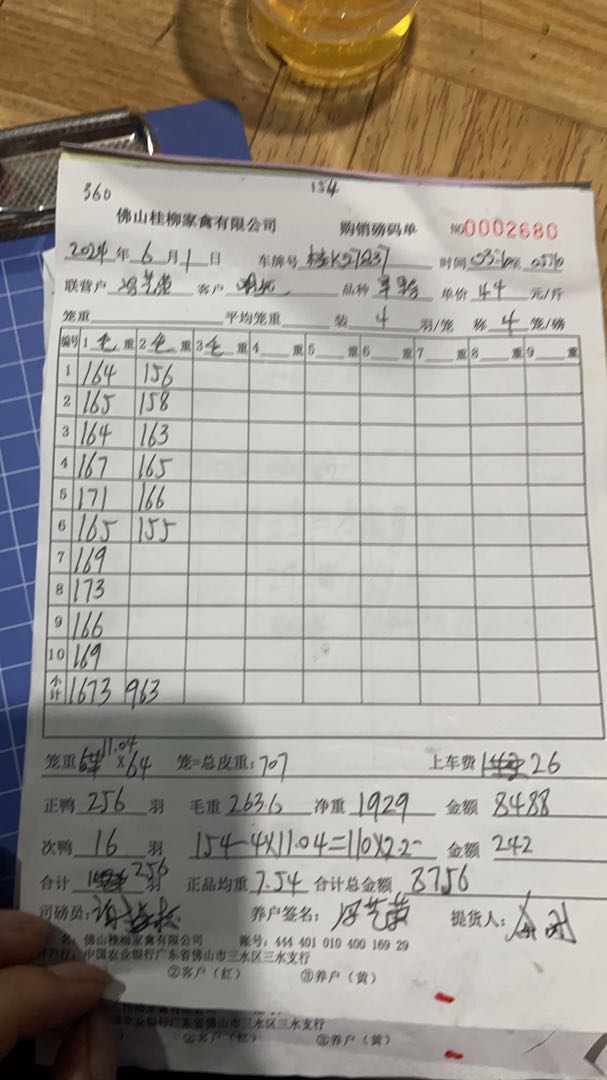 360 154
佛山桂柳家禽有限公司 购销磅码单 №0002680
2024年 6月 1日 车牌号 时间
联营户 客户 品种 单价 4.4 元/斤
笼重 平均笼重 装 4 羽/笼 称 4 笼/磅
编号 1 毛 重 2 毛 重 3 毛 重 4 重 5 重 6 重 7 重 8 重 9 重
1 164 156
2 165 158
3 164 163
4 167 165
5 171 166
6 165 155
7 169
8 173
9 166
10 169
小计 1673 963
笼重 11.04 ×64 笼=总皮重: 707 上车费 26
正鸭 256 羽 毛重 2636 净重 1929 金额 8488
次鸭 16 羽 154-4×11.04=110×2.2- 金额 242
合计 256 羽 正品均重 7.54 合计总金额 8756
司磅员: 养户签名: 冯艺荣 提货人:
名: 佛山桂柳家禽有限公司 账号: 444 401 010 400 169 29
开户行: 中国农业银行广东省佛山市三水区三水支行
②客户（红） ③养户（黄）
桂柳家禽有限公司
农业银行广东省佛山市三水区三水支行
②客户（红） ③养户（黄）